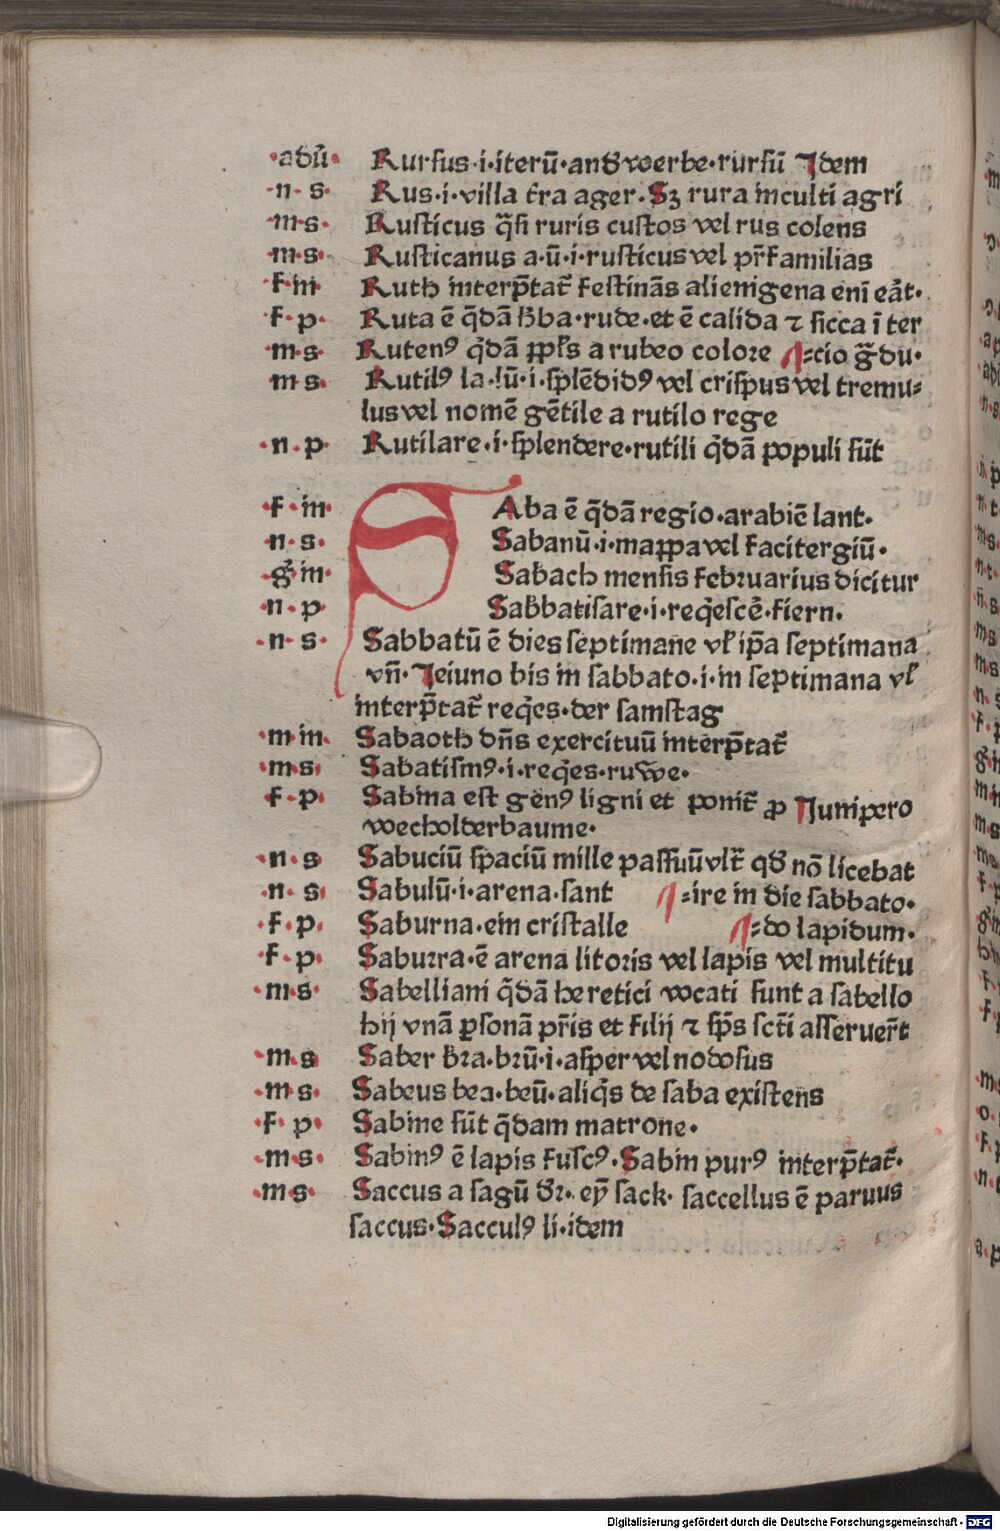 ·adū· Rursus·i·iterū·anđwerbe·rursū Jdem
·n·s· Rus·i·villa t̄ra ager·Sꝫ rura inculti agri
·m·s· Rusticus q̄si ruris custos vel rus colens
·m·s· Rusticanus a·ū·i·rusticus vel pr̄familias
·f·in· Ruth interp̄tat̄ festinās alienigena eni eāt·
·f·p· Ruta ē q̄dā h̄ba·rude·et ē calida ⁊ sicca ī ter
·m·s· Rutenꝰ q̄dā ꝓpl̄s a rubeo colore ⸗cio g̃du·
·m·s· Rutilꝰ la·lū·i·splēdidꝰ vel crispus vel tremu⸗
lus vel nomē gētile a rutilo rege
·n·p· Rutilare·i·splendere·rutili q̄dā populi sūt
·f·in· SAba ē q̄dā regio·arabiē lant·
·n·s· Sabanū·i·mappa vel facitergiū·
·g̃·in· Sabach mensis februarius dicitur
·n·p· Sabbatisare·i·req̄escē·fiern·
·n·s· Sabbatū ē dies septimane vł ip̄a septimana
vn̄·Jeiuno bis in sabbato·i·in septimana vł
interp̄tat̄ req̄es·der samstag
·m·in· Sabaoth dn̄s exercituū interp̄tat̄
·m·s· Sabatismꝰ·i·req̄es·ruwe·
·f·p· Sabina est genꝰ ligni et ponit̄ ꝓ Junipero
wecholderbaume·
·n·s Sabuciū spaciū mille passuū vlt̄ qđ nō licebat
·n·s· Sabulū·i·arena·sant ⸗ire in die sabbato·
·f·p· Saburna·ein cristalle ⸗do lapidum·
·f·p· Saburra·ē arena litoris vel lapis vel multitu
·m·s· Sabelliani q̄dā heretici vocati sunt a sabello
hij vnā ꝑsonā pr̄is et filij ⁊ sp̄s sc̄ti asseruer̄t
·m·s Saber b̄ra·brū·i·asper vel nodosus
·m·s· Sabeus bea·beū·aliq̄s de saba existens
·f·p· Sabine sūt q̄dam matrone·
·m·s· Sabinꝰ ē lapis fuscꝰ·Sabin purꝰ interp̄tat̄·
·m·s· Saccus a sagū đr·ey̅ sack·saccellus ē paruus
saccus·Sacculꝰ li·idem
Digitalisierung gefördert durch die Deutsche Forschungsgemeinschaft · DFG